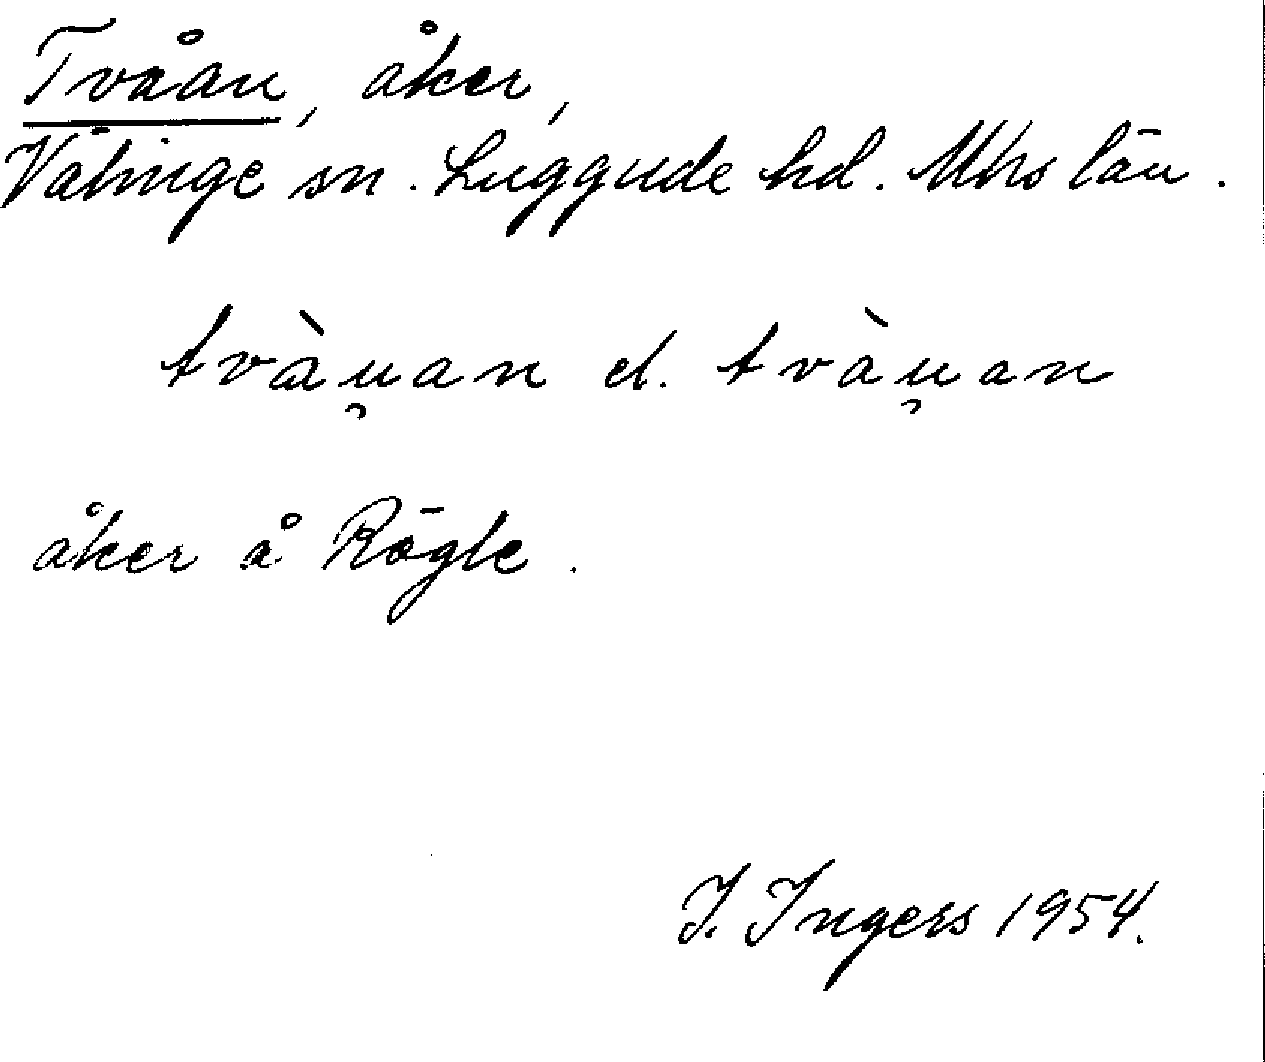 Tvåan, åker,
Välinge sn. Luggude hd. Mhs län.
tvàu̯an el. tvàu̯an
åker å Rögle.
I. Ingers 1954.